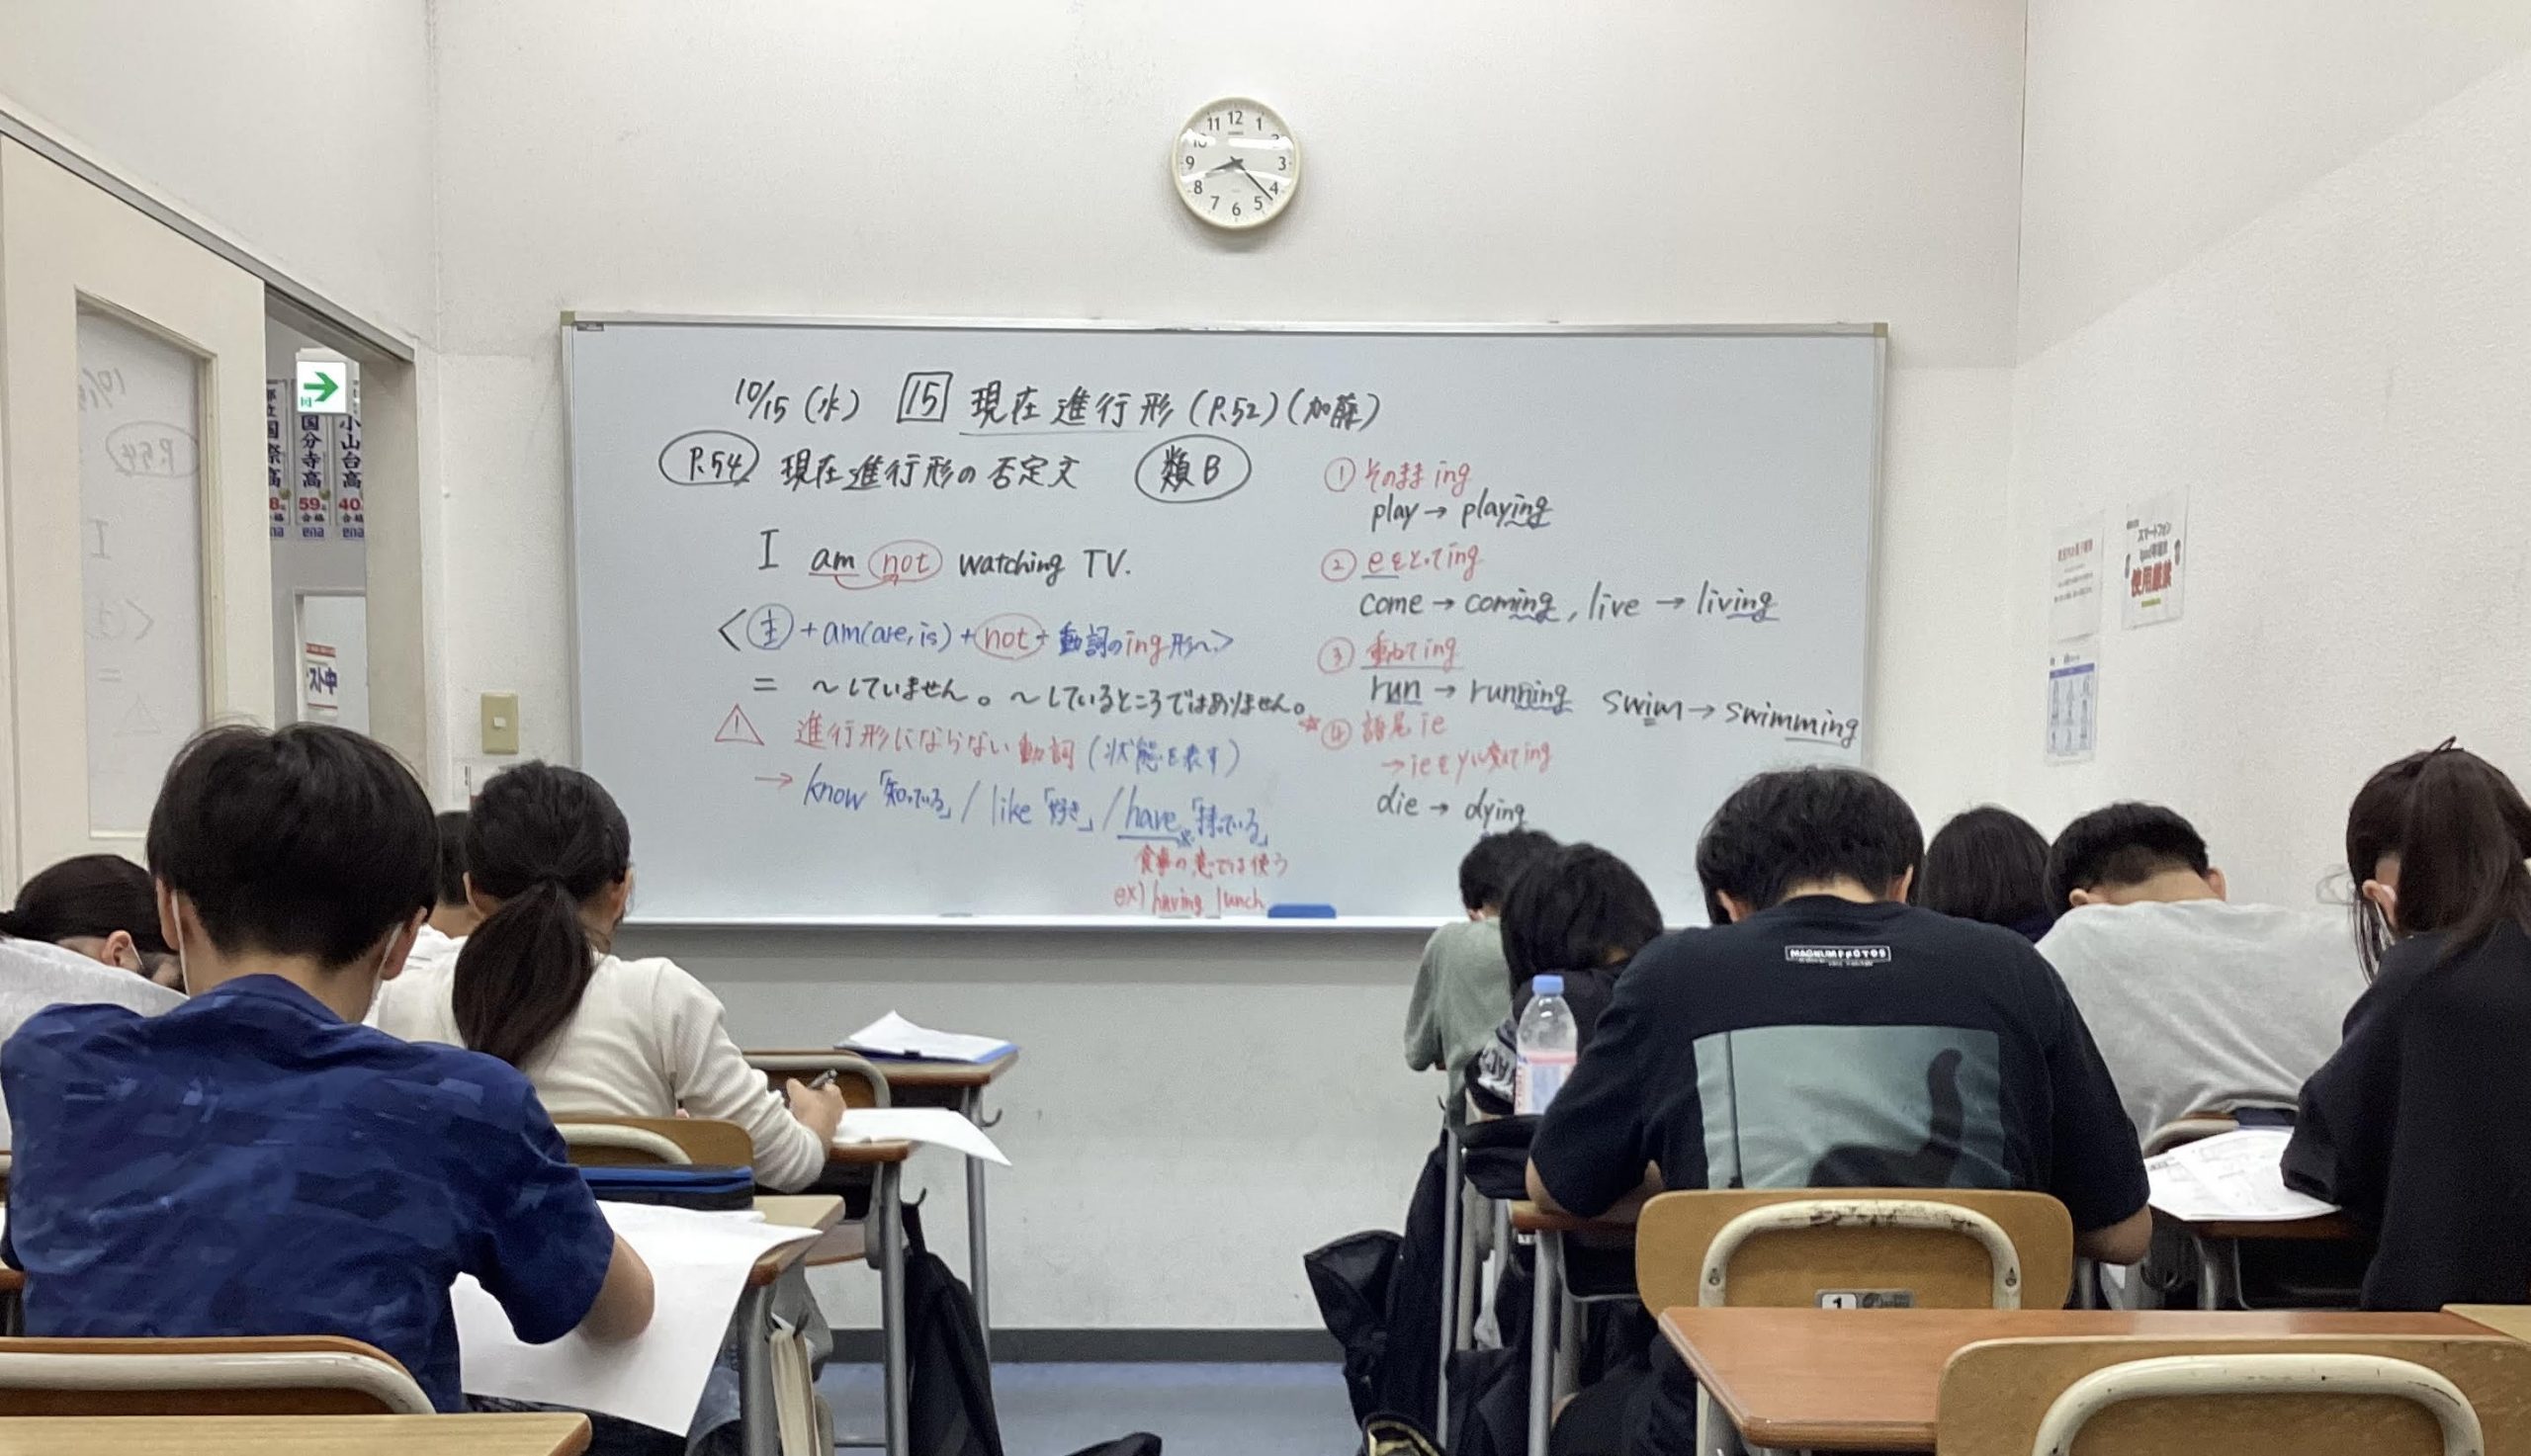 12
11
1
3
9
4
8
5
7
6
10/15(水) 15 現在進行形(P.52)(加藤)
P.54 現在進行形の否定文 類B
I am not watching TV.
<主+am(are,is)+not+動詞のing形~>
= ~していません。~しているところではありません。
! 進行形にならない動詞(状態を表す)
→know「知っている」/like「好き」/have「持っている」
食事の意では使う
ex) having lunch
① そのままing
play→playing
② eをとってing
come→coming, live→living
③ 重ねてing
run→running swim→swimming
④ 語尾ie
→ieをyに変えてing
die→dying
国際高
8
合格
ena
国分寺高
59
合格
ena
小山台高
40
合格
ena
スト中
P.54
I
スマートフォン
使用厳禁
MAGNUM PHOTOS
1